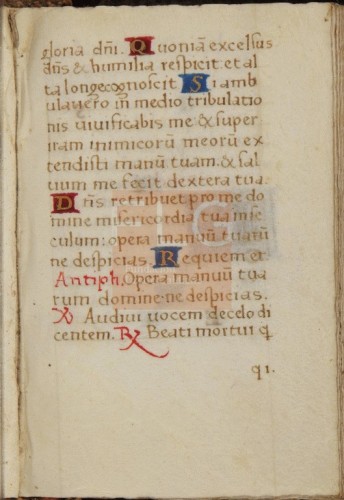 gloria dñi. Quoniã excelsus
dñs & humilia respicit: et al
ta longe cognoscit Si amb
ulauero in medio tribulatio
nis uiuificabis me & super
iram inimicorũ meorũ ex
tendisti manũ tuam. & sal
uum me fecit dextera tua.
Dñs retribuet pro me do
mine misericordia tua in se
culum: opera manuũ tuarũ
ne despicias. Requiem et
Antiph. Opera manuũ tua
rum domine ne despicias.
℣ Audiui uocem de celo di
centem. ℟ Beati mortui q
qi.